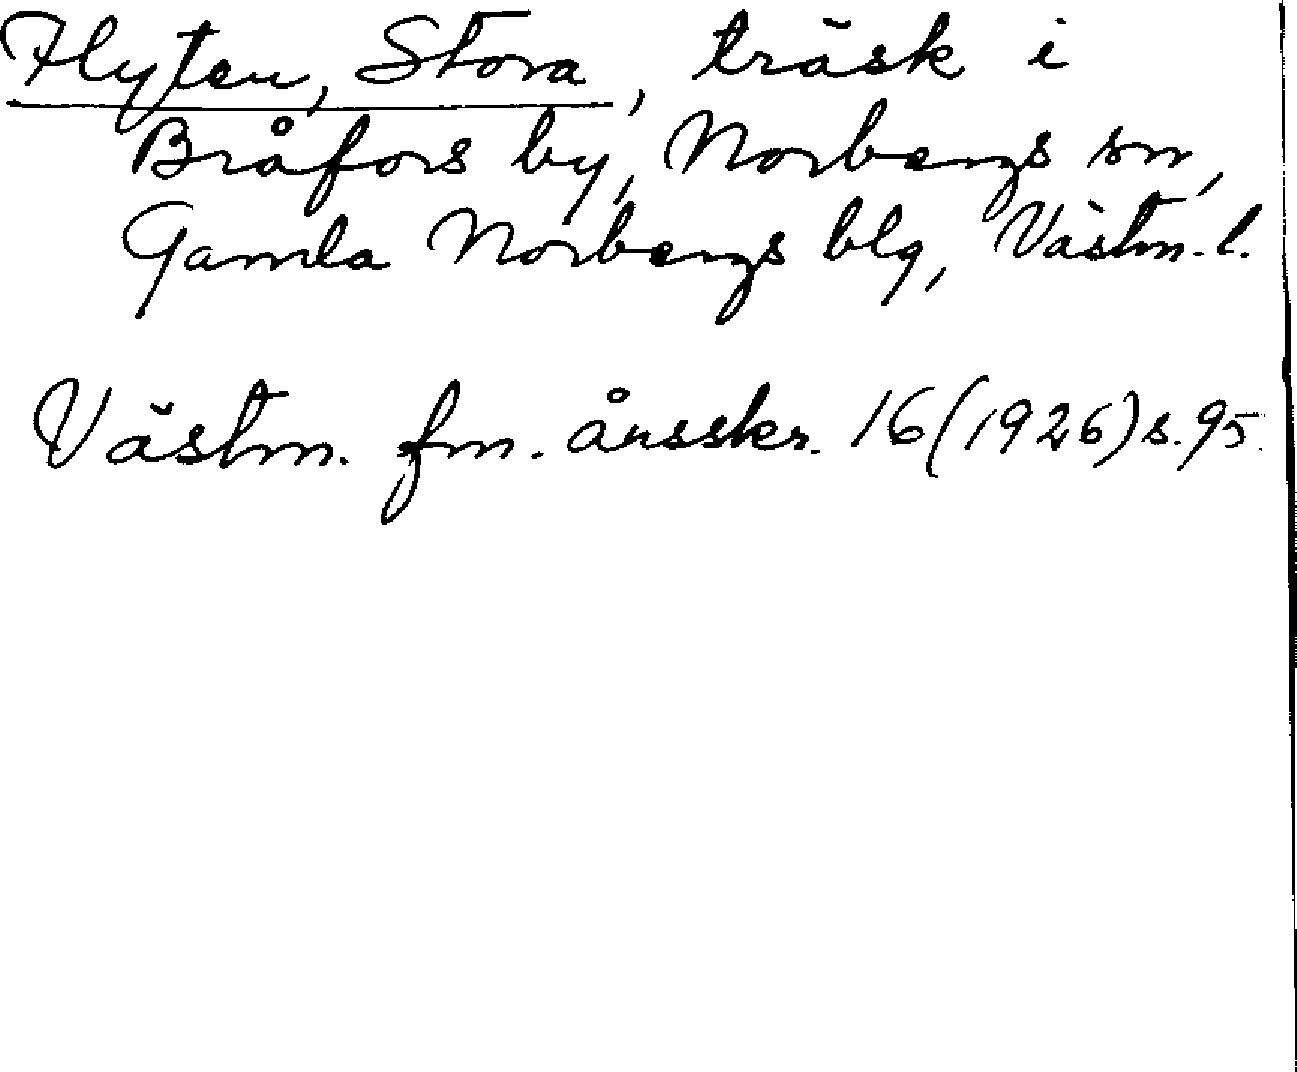 Flyten, Stora, träsk i
Bråfors by, Norbergs sn,
Gamla Norbergs blg, Västm. l.
Västm. fm. årsskr. 16 (1926) s. 95.